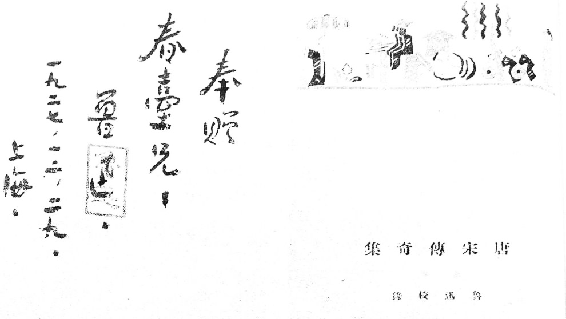 奉贈
春臺兄。
魯迅。
一九二七、一二、二九。
上海。
唐宋傳奇集
魯迅校錄